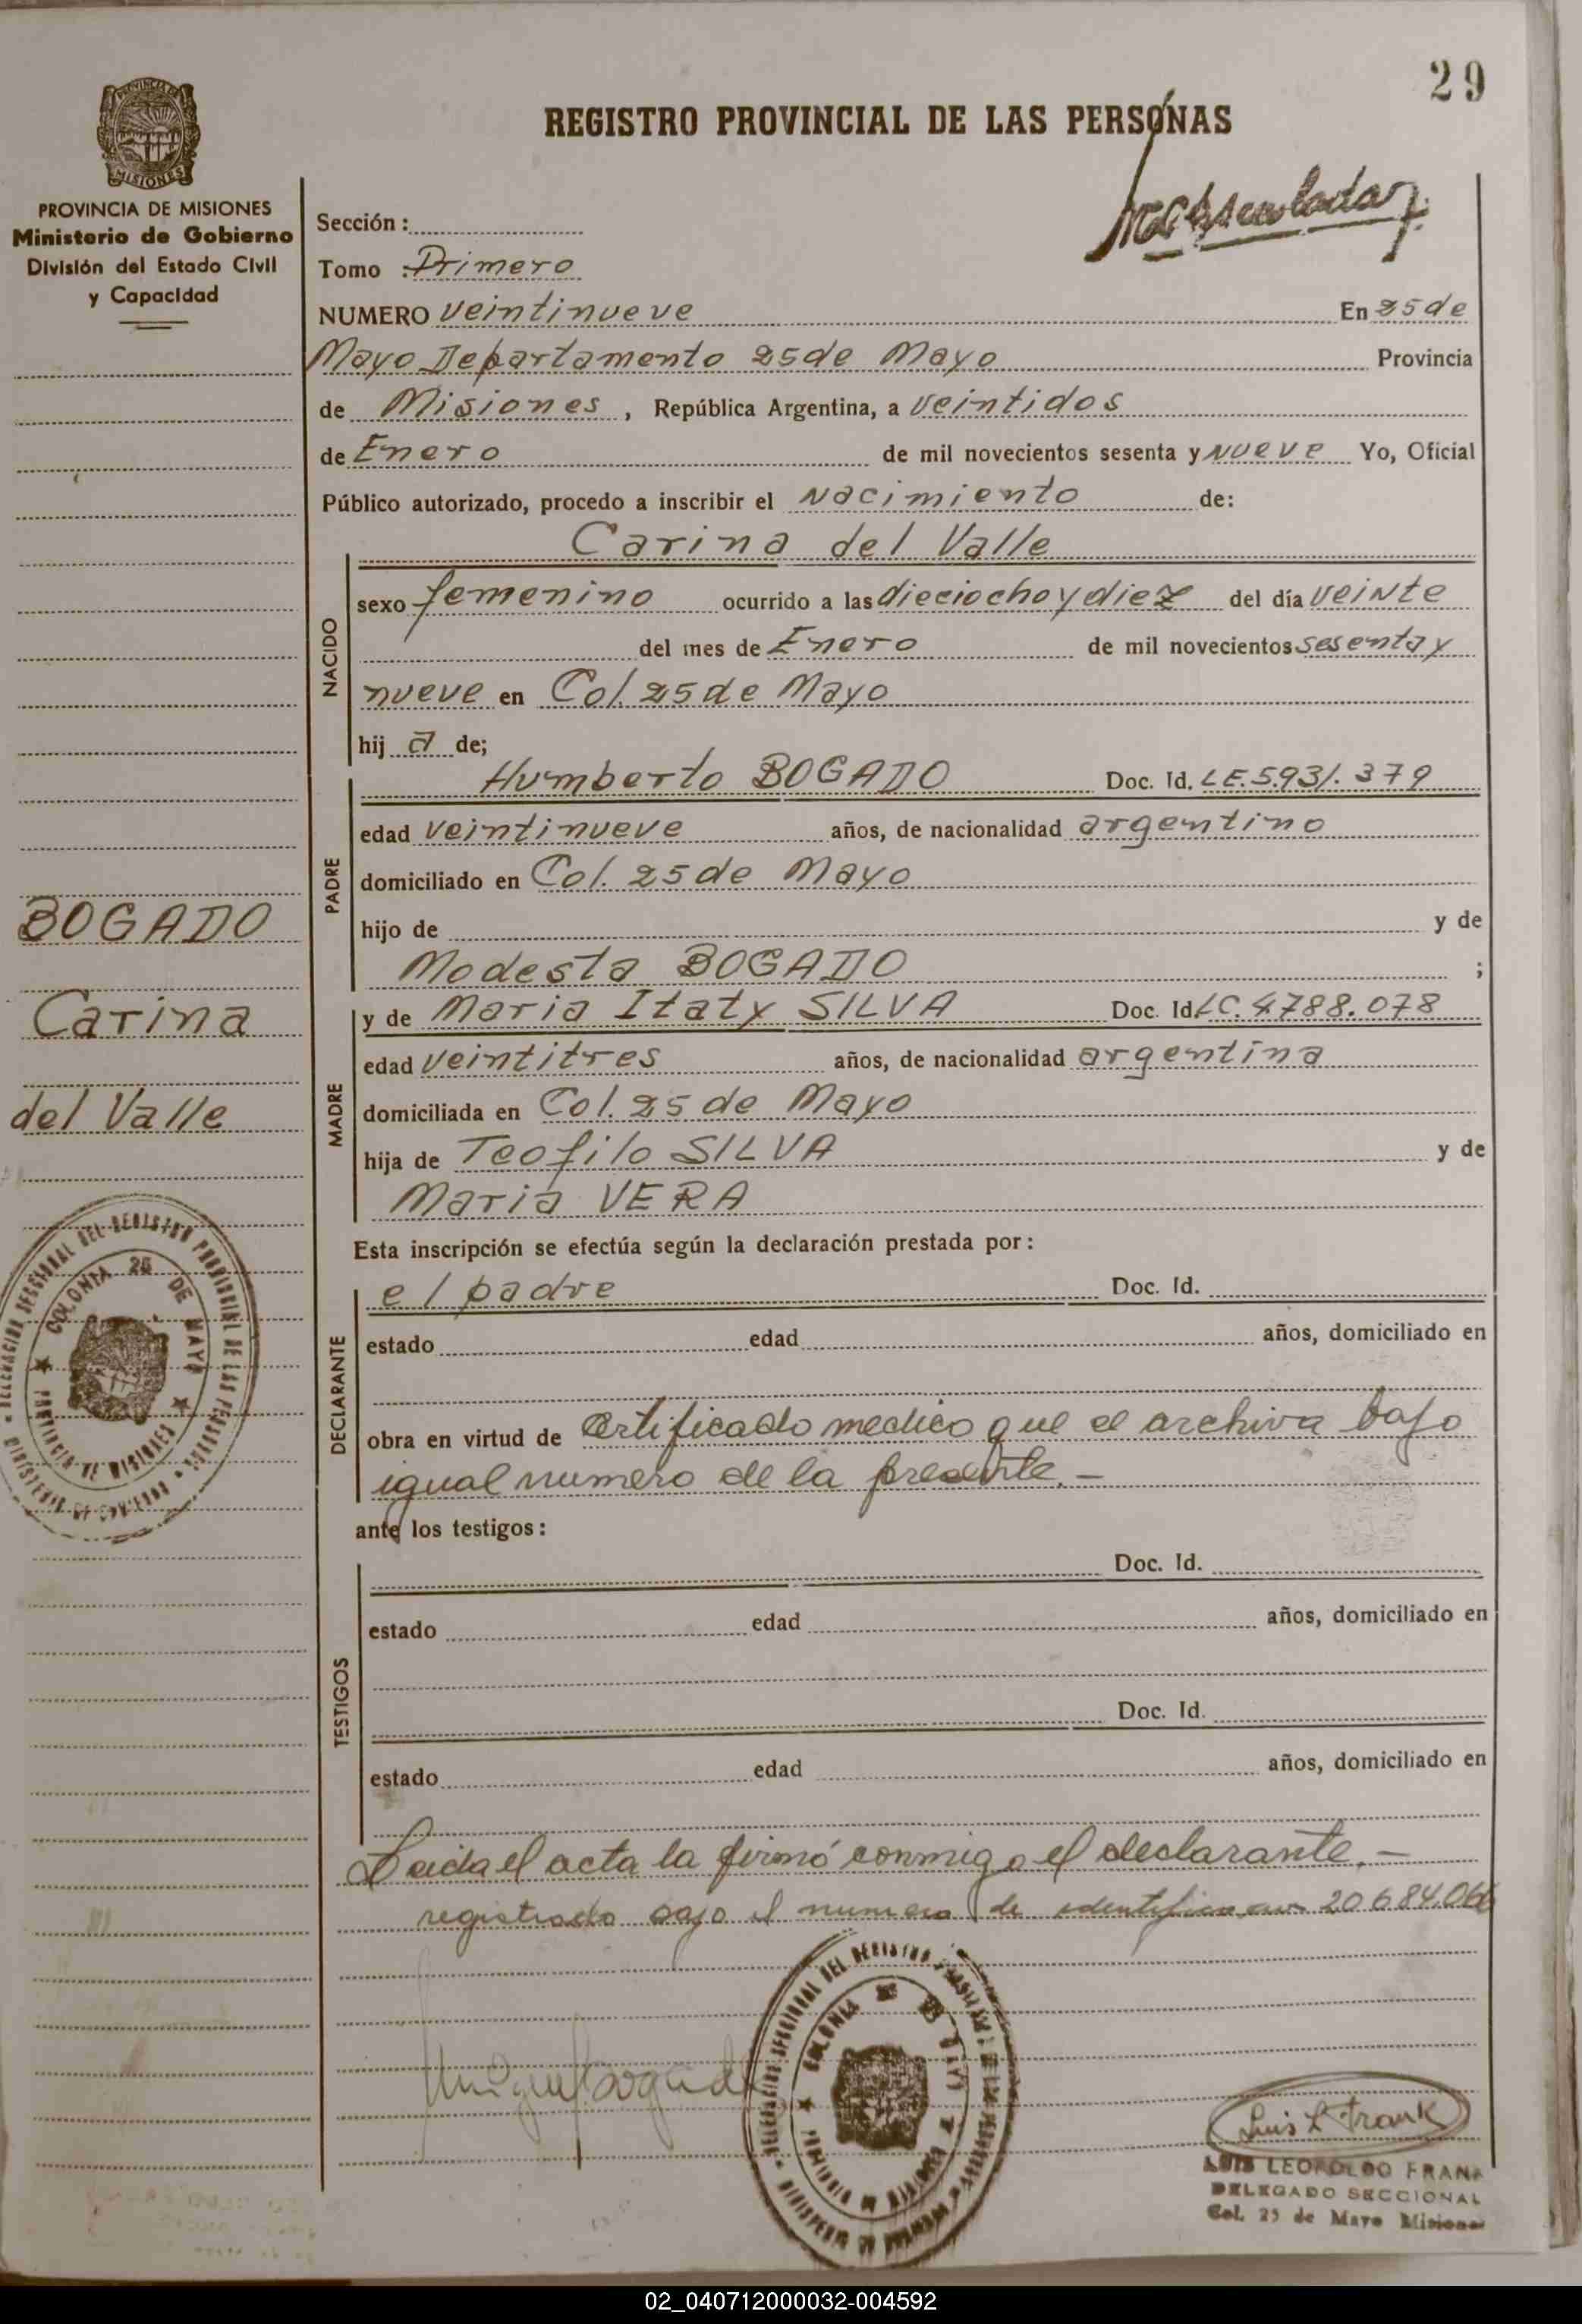 29
REGISTRO PROVINCIAL DE LAS PERSONAS
PROVINCIA DE
MISIONES
PROVINCIA DE MISIONES
Ministerio de Gobierno
División del Estado Civil
y Capacidad
Sección:
Tomo : Primero
NUMERO veintinueve En 25 de
Mayo Departamento 25 de Mayo Provincia
de Misiones, República Argentina, a veintidos
de Enero de mil novecientos sesenta y nueve Yo, Oficial
Público autorizado, procedo a inscribir el nacimiento de:
NACIDO
Carina del Valle
sexo femenino ocurrido a las dieciocho y diez del día veinte
del mes de Enero de mil novecientos sesenta y
nueve en Col. 25 de Mayo
hij a de;
PADRE
Humberto BOGADO Doc. Id. LE. 5.931.379
edad veintinueve años, de nacionalidad argentino
domiciliado en Col. 25 de Mayo
hijo de y de
Modesta BOGADO ;
MADRE
y de Maria Itaty SILVA Doc. Id LC. 4788.078
edad veintitres años, de nacionalidad argentina
domiciliada en Col. 25 de Mayo
hija de Teofilo SILVA y de
Maria VERA
BOGADO
Carina
del Valle
Esta inscripción se efectúa según la declaración prestada por:
DECLARANTE
el padre Doc. Id.
estado edad años, domiciliado en
obra en virtud de Certificado medico que se archiva bajo
igual numero de la presente.-
ante los testigos:
TESTIGOS
Doc. Id.
estado edad años, domiciliado en
Doc. Id.
estado edad años, domiciliado en
Leida el acta la firmó conmigo el declarante.-
registrado bajo el numero de 20.684.066
DELEGACION SECCIONAL DEL REGISTRO PROVINCIAL DE LAS PERSONAS
COLONIA 25 DE MAYO
PROVINCIA DE MISIONES
DELEGACION SECCIONAL DEL REGISTRO
COLONIA
PROVINCIA DE MISIONES
Luis L Frank
LUIS LEOPOLDO FRANK
DELEGADO SECCIONAL
Col. 25 de Mayo Misiones
02_040712000032-004592